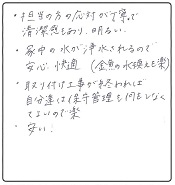 ・担当の方の応対が丁寧で
清潔感もあり、明るい。
・家中の水が浄水されるので
安心、快適 (金魚の水換えも楽)
・取り付け工事が終われば
自分達は保守管理も何もしなく
てよいので楽
・安い。